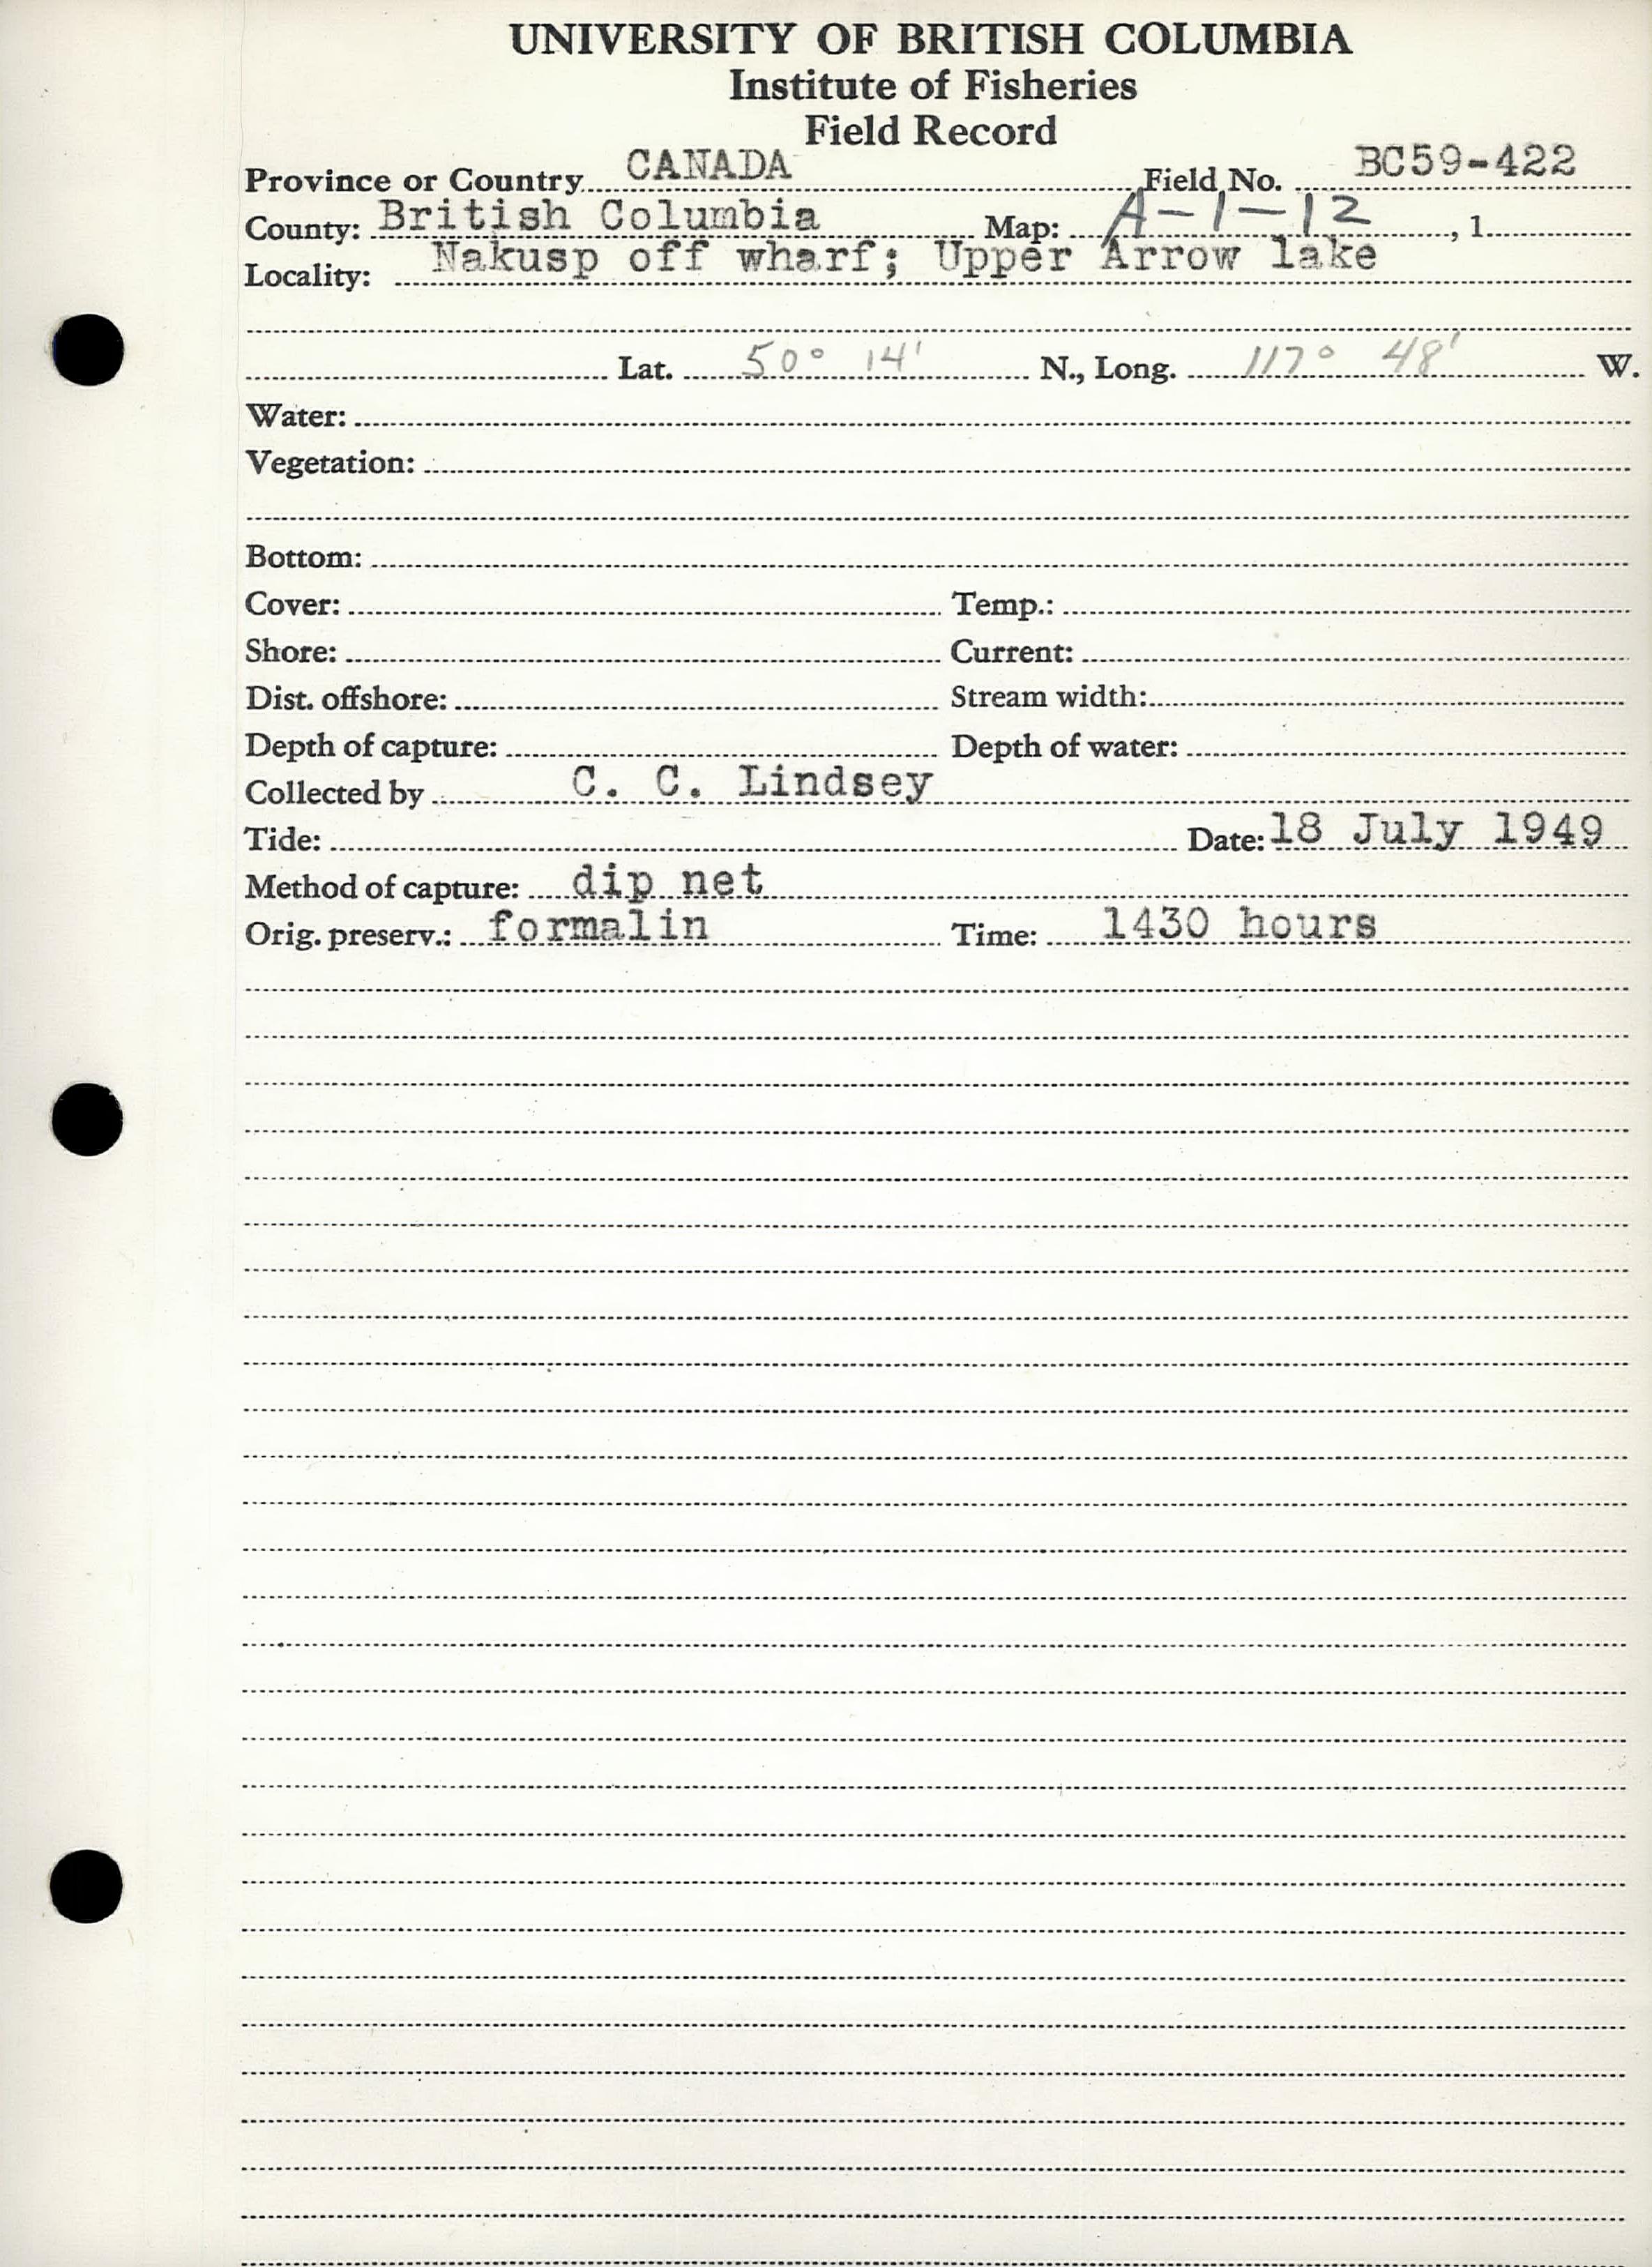 UNIVERSITY OF BRITISH COLUMBIA
Institute of Fisheries
Field Record
Province or Country CANADA Field No. BC59-422
County: British Columbia Map: A-1-12, 1
Locality: Nakusp off wharf; Upper Arrow lake
Lat. 50° 14' N., Long. 117° 48' W.
Water:
Vegetation:
Bottom:
Cover: Temp.:
Shore: Current:
Dist. offshore: Stream width:
Depth of capture: Depth of water:
Collected by C. C. Lindsey
Tide: Date: 18 July 1949
Method of capture: dip net
Orig. preserv.: formalin Time: 1430 hours